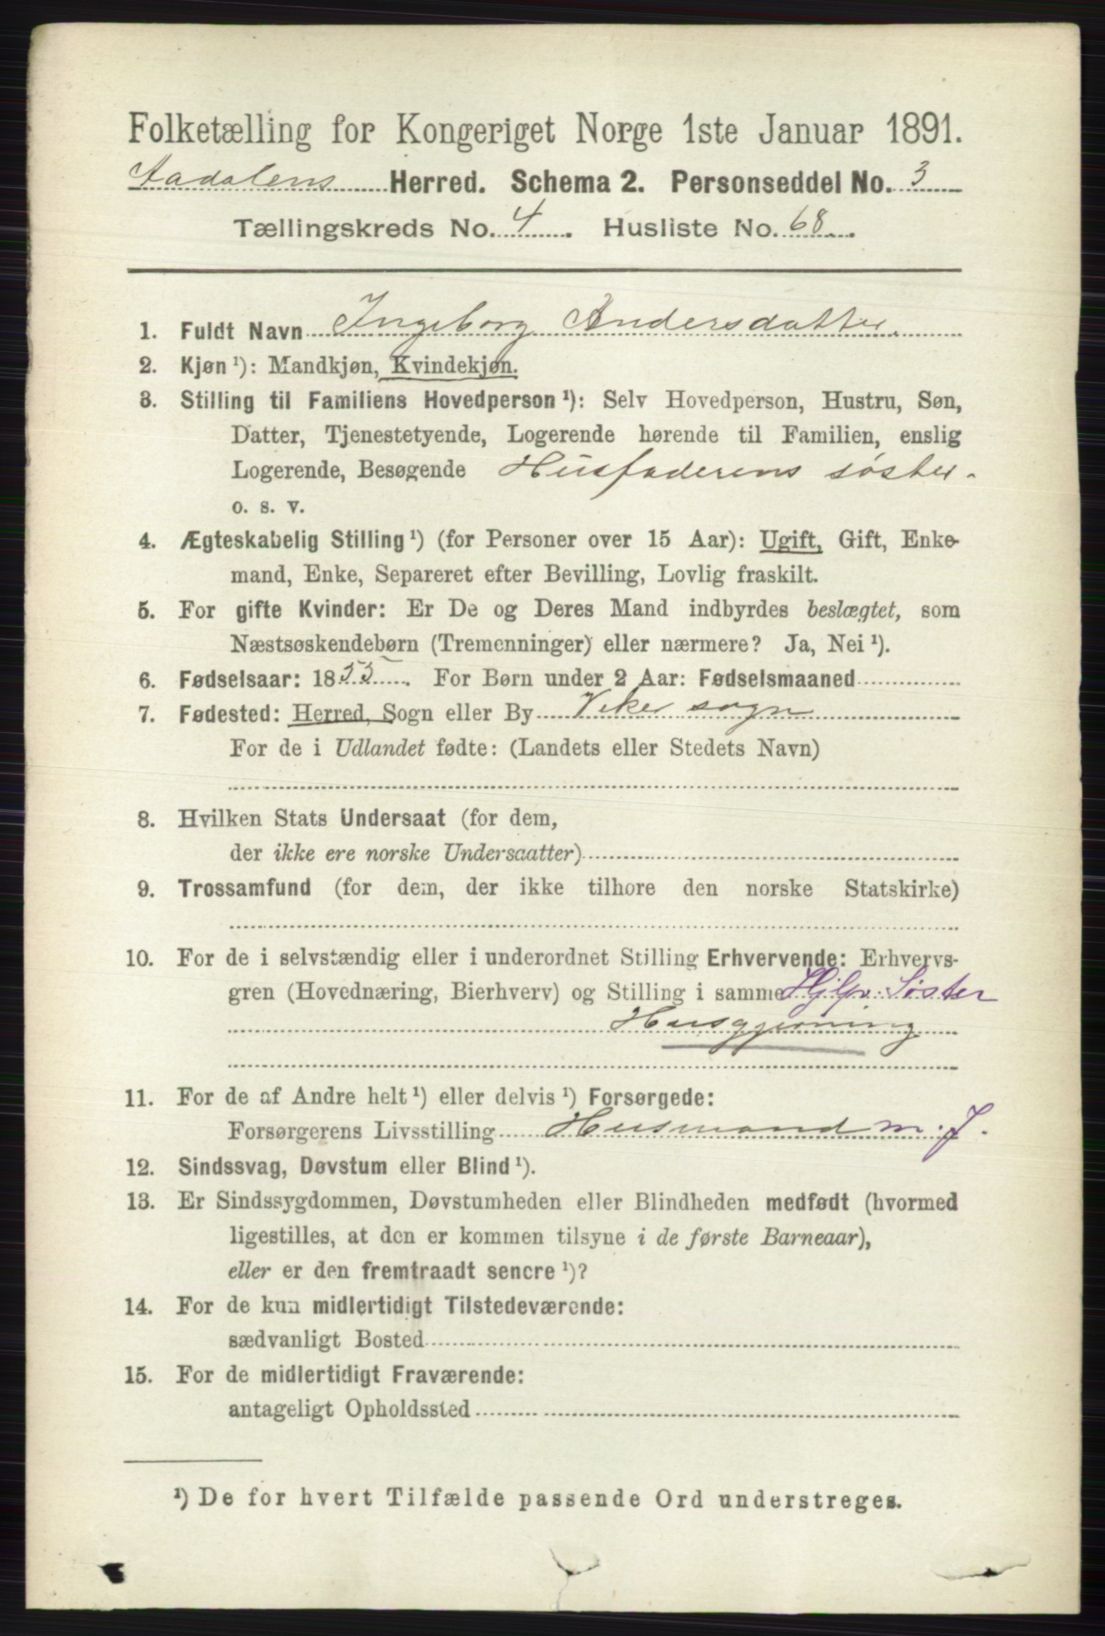 Folketælling for Kongeriget Norge 1ste Januar 1891.
Aadalens Herred. Schema 2. Personseddel No. 3
Tællingskreds No. 4. Husliste No. 68.
1. Fuldt Navn Ingeborg Andersdatter
2. Kjøn ¹): Mandkjøn, Kvindekjøn.
3. Stilling til Familiens Hovedperson ¹): Selv Hovedperson, Hustru, Søn,
Datter, Tjenestetyende, Logerende hørende til Familien, enslig
Logerende, Besøgende Husfaderens søster.
o. s. v.
4. Ægteskabelig Stilling ¹) (for Personer over 15 Aar): Ugift, Gift, Enke-
mand, Enke, Separeret efter Bevilling, Lovlig fraskilt.
5. For gifte Kvinder: Er De og Deres Mand indbyrdes beslægtet, som
Næstsøskendebørn (Tremenninger) eller nærmere? Ja, Nei ¹).
6. Fødselsaar: 1855. For Børn under 2 Aar: Fødselsmaaned
7. Fødested: Herred, Sogn eller By Viker sogn
For de i Udlandet fødte: (Landets eller Stedets Navn)
8. Hvilken Stats Undersaat (for dem,
der ikke ere norske Undersaatter)
9. Trossamfund (for dem, der ikke tilhøre den norske Statskirke)
10. For de i selvstændig eller i underordnet Stilling Erhvervende: Erhvervs-
gren (Hovednæring, Bierhverv) og Stilling i samme Hjlp. Søster
Husgjerning
11. For de af Andre helt ¹) eller delvis ¹) Forsørgede:
Forsørgerens Livsstilling Husmand m. J.
12. Sindssvag, Døvstum eller Blind ¹).
13. Er Sindssygdommen, Døvstumheden eller Blindheden medfødt (hvormed
ligestilles, at den er kommen tilsyne i de første Barneaar),
eller er den fremtraadt senere ¹)?
14. For de kun midlertidigt Tilstedeværende:
sædvanligt Bosted
15. For de midlertidigt Fraværende:
antageligt Opholdssted
¹) De for hvert Tilfælde passende Ord understreges.